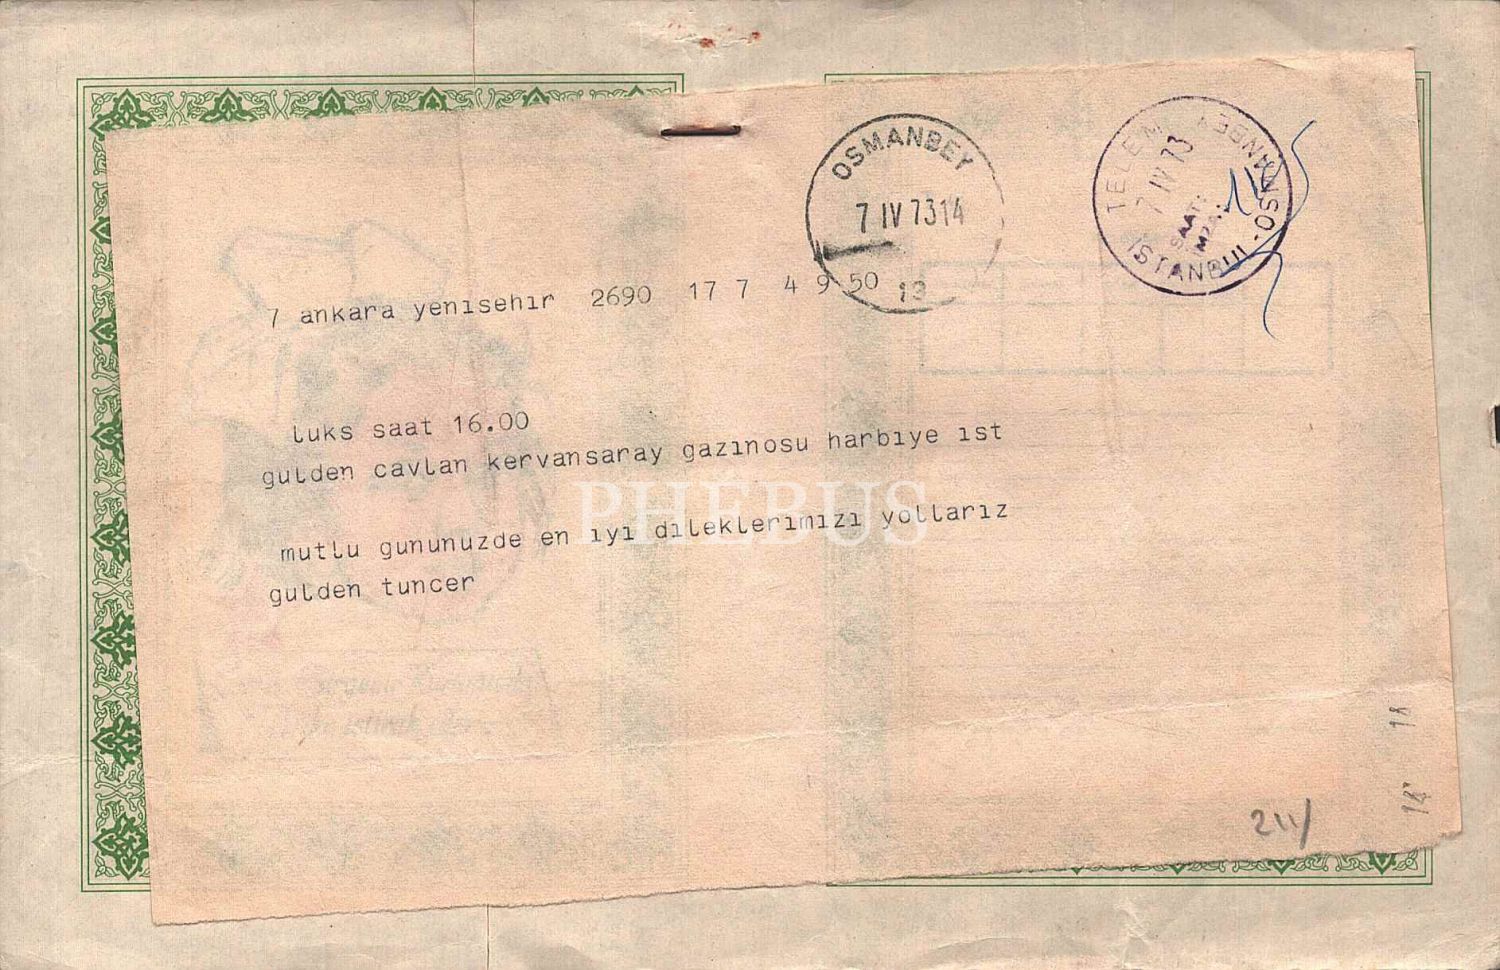 OSMANBEY
7 IV 7314
13
TELEM
7 IV 73
SAAT:
İMZA:
İSTANBUL-OSMANBEY
7 ankara yenısehır 2690 17 7 4 9 50
luks saat 16.00
gulden cavlan kervansaray gazınosu harbıye ıst
mutlu gununuzde en ıyı dıleklerımızı yollarız
gulden tuncer
PHEBUS
211/